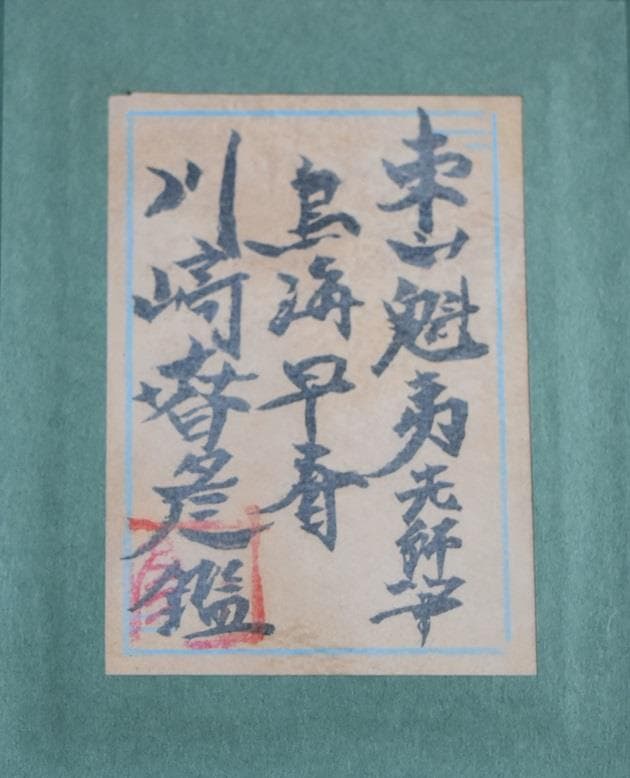 東山魁夷先師筆
鳥海早春
川﨑春彦鑑